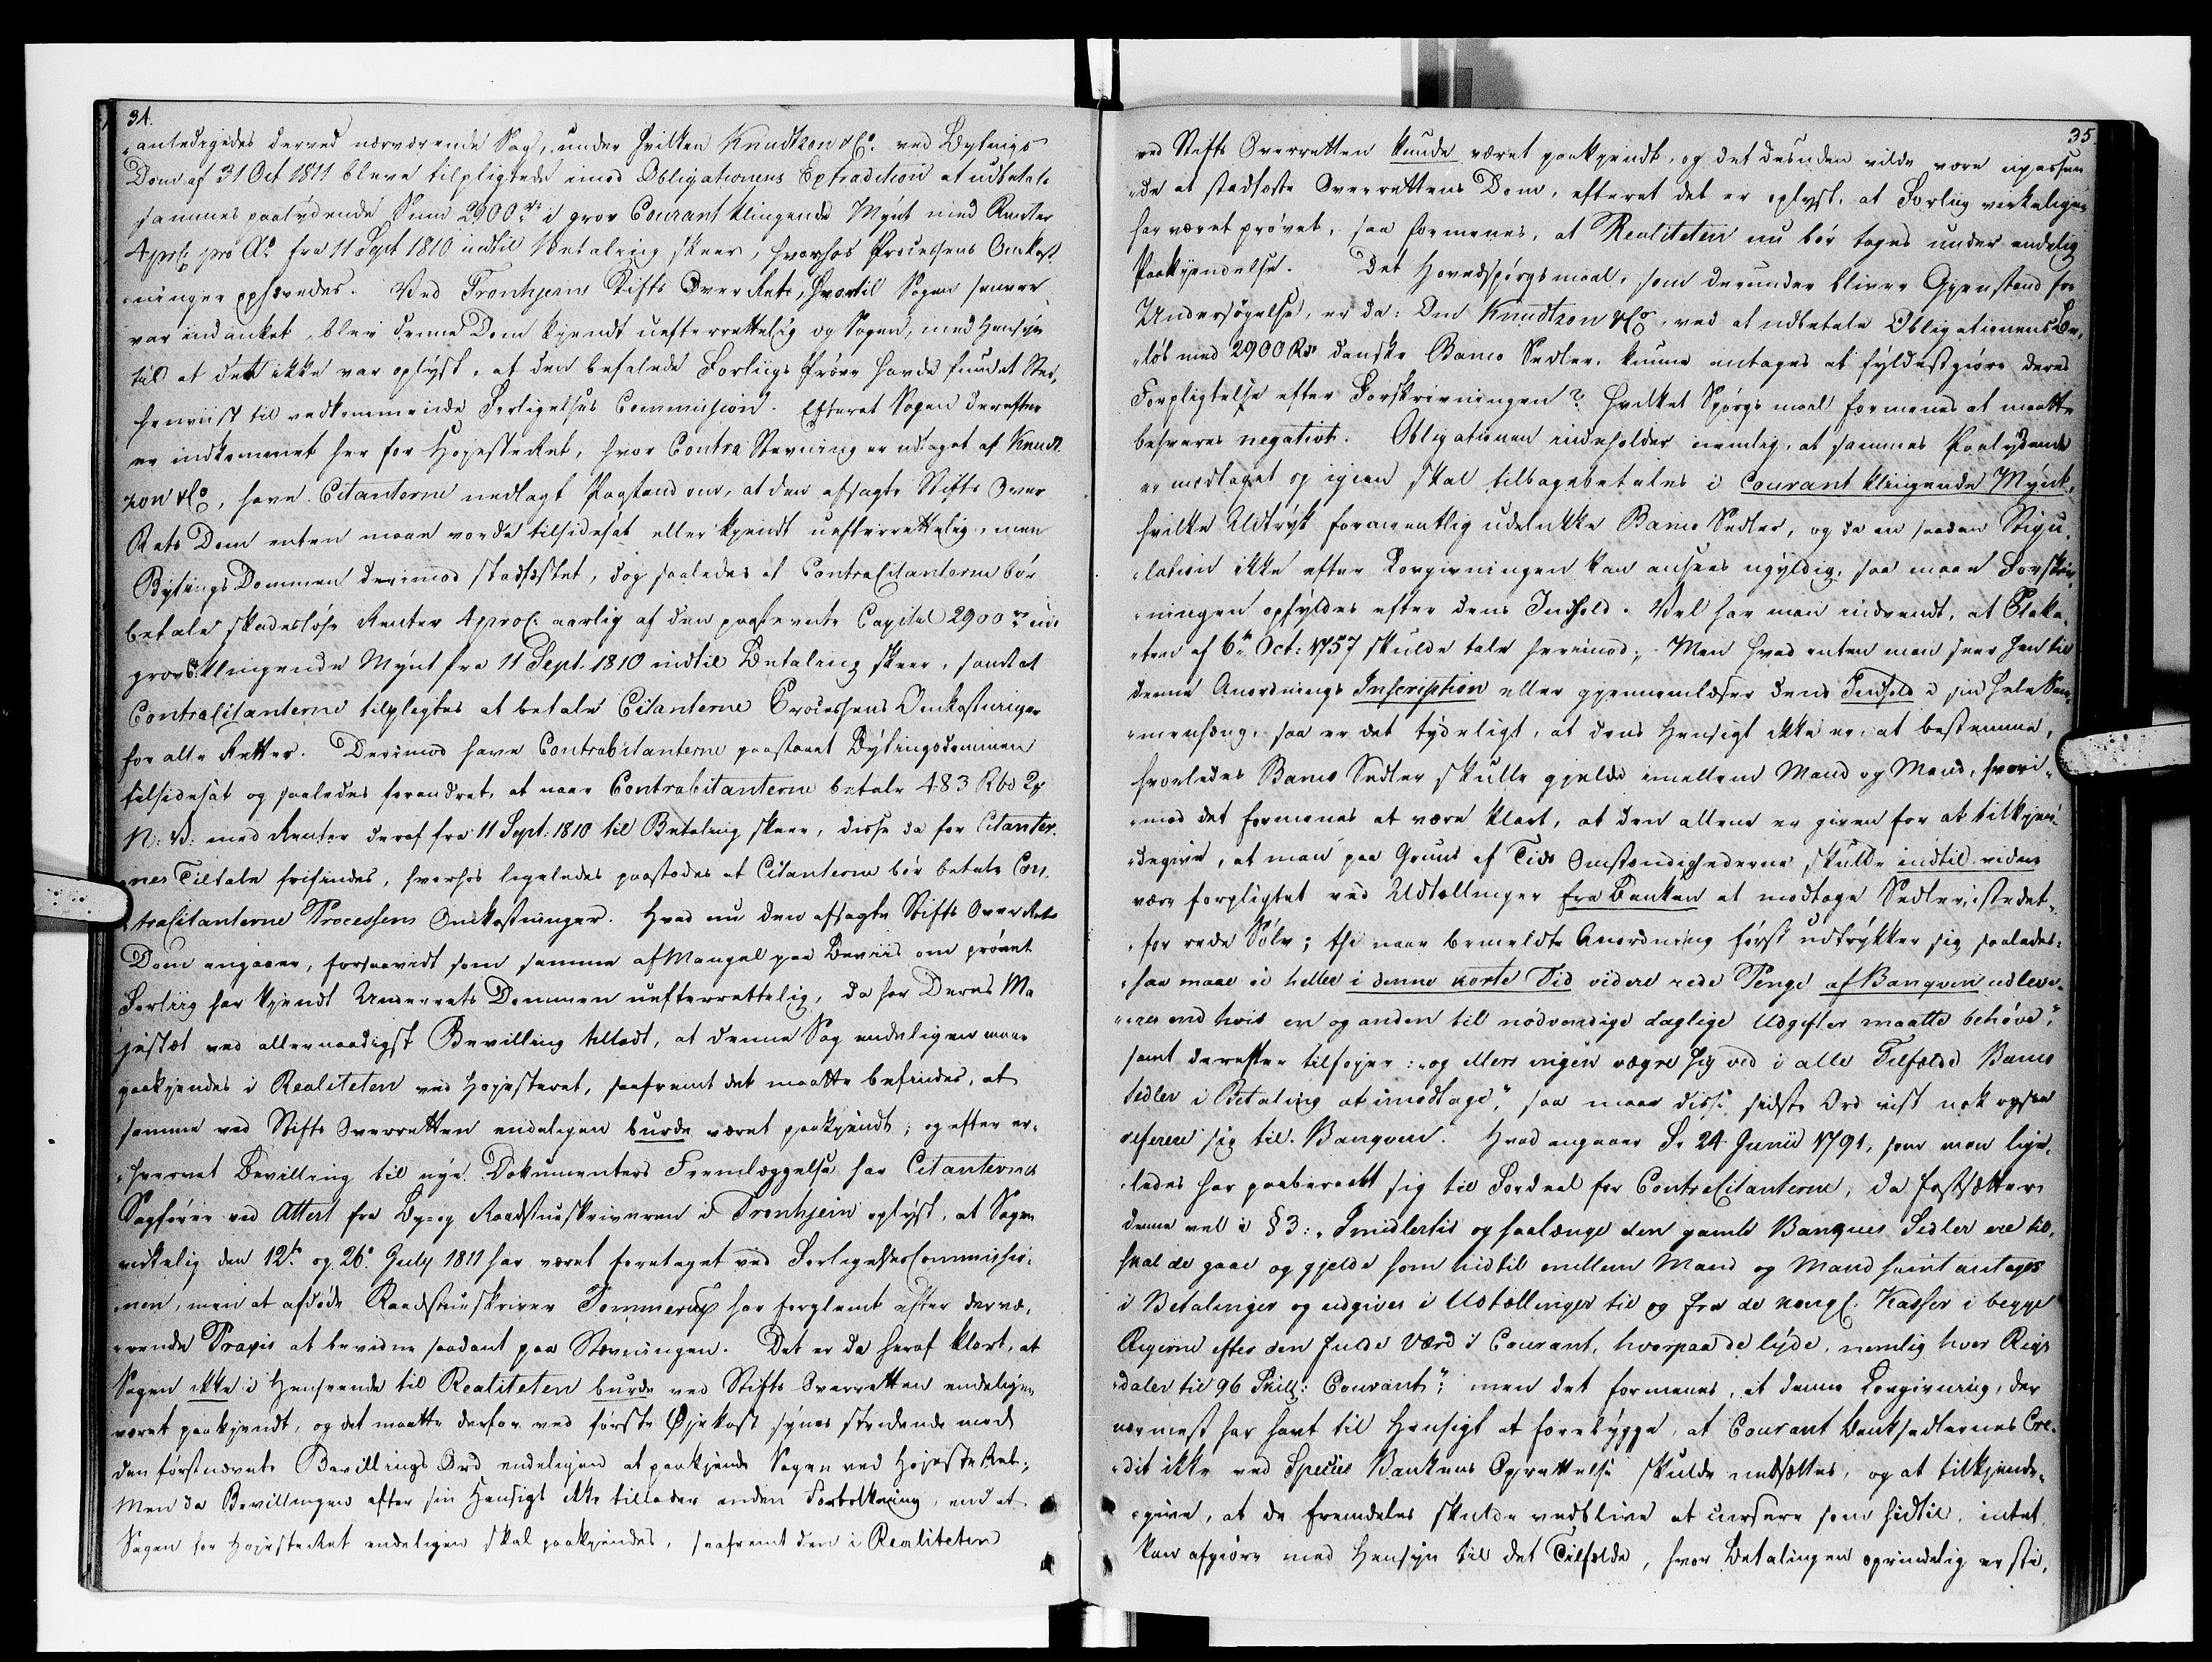 34.
antedigedes derved nærværende Sag, under hvilken Knudtzon & Co. ved Bytings
Dom af 31 Oct 1811 bleve tilpligtede imod Obligationens Extradition at udbetale
sammes paalydende Sum 2900 rd. i grov Courant klingende Mynt med Renter
4 prC. pro Ao. fra 11 Sept 1810 indtil Betaling skeer, hvorhos Processens Omkost
ninger ophævedes. Ved Tronhjems Stifts OverRet, hvortil Sagen senere
var indanket, blev denne Dom kjendt uefterrettelig og Sagen, med Hensyn
til at det ikke var oplyst, at den befalede Forligs Prøve havde fundet Sted,
henviist til vedkommende Forligelses Commission. Efterat Sagen derefter
er indkommet her for HøjesteRet, hvor Contra Stevning er udtaget af Knudt
zon & Co, have Citanterne nedlagt Paastand om, at den afsagte Stifts Over
Rets Dom enten maae vorde tilsidesat eller kjendt uefterrettelig, men
Bytings Dommen derimod stadfæstet, dog saaledes at ContraCitanterne bør
betale skadesløse Renter 4 proC. aarlig af den paastevnte Capital 2900 rd. i
grov klingende Mynt fra 11 Sept. 1810 indtil Betaling skeer, samt at
ContraCitanterne tilpligtes at betale Citanterne Processens Omkostninger
for alle Retter. Derimod have ContraCitanterne paastaaet Bytingsdommen
tilsidesat og saaledes forandret, at naar ContraCitanterne betale 483 Rbd 2
N: V: med Renter deraf fra 11 Sept: 1810 til Betaling skeer, disse da for Citanter
nes Tiltale frifindes, hvorhos ligeledes paastodes at Citanterne bør betale Con
traCitanterne Processens Omkostninger. Hvad nu den afsagte Stifts OverRets
Dom angaaer, forsaavidt som samme af Mangel paa Beviis om prøvet
Forliig har kjendt Underrets Dommen uefterrettelig, da har Deres Ma
jestæt ved allernaadigst Bevilling tilladt, at denne Sag endeligen maae
paakjendes i Realiteten ved Højesteret, saafremt det maatte befindes, at
samme ved Stifts Overretten endeligen burde været paakjendt; og efter er
hvervet Bevilling til nye Dokumenters Fremlæggelse har Citanternes
Sagfører ved Attest fra By- og Raadstueskriveren i Tronhjem oplyst, at Sagen
virkelig den 12te og 26de July 1811 har været foretaget ved ForligelsesCommissio
nen, men at afdøde Raadstueskriver Tommerup har forglemt efter dervæ
rende Praxis at bevidne saadant paa Stevningen. Det er da heraf klart, at
Sagen ikke i Henseende til Realiteten burde ved Stifts Overretten endeligen
været paakjendt, og det maatte derfor ved første Øjekast synes stridende mod
den førstnævnte Bevillings Ord endeligen at paakjende Sagen ved HøjesteRet;
Men da Bevillingen efter sin Hensigt ikke tillader anden Fortolkning, end at
Sagen for HøjesteRet endeligen skal paakjendes, saafremt den i Realiteten
35.
ved Stifts Overretten kunde været paakjendt, og det desuden vilde være upassen
de at stadfæste Overrettens Dom, efterat det er oplyst, at Forliig virkeligen
har været prøvet, saa formenes, at Realiteten nu bør tages under endelig
Paakjendelse. Det Hovedspørgsmaal, som derunder bliver Gjenstand for
Undersøgelse, er da: Om Knudtzon & Co, ved at udbetale Obligationens Be
løb med 2900 Rdr danske Banco Sedler, kunne antages at fyldestgjøre deres
Forpligtelse efter Forskrivningen? hvilket Spørgsmaal formenes at maatte
besvares negativt. Obligationen indeholder nemlig, at sammes Paalydende
er modtaget og igjen skal tilbagebetales i Courant klingende Mynt,
hvilke Udtryk formentlig udelukke Banco Sedler, og da en saadan Stipu
lation ikke efter Lovgivningen kan ansees ugyldig, saa maae Forskriv
ningen opfyldes efter dens Indhold. Vel har man indvendt, at Plaka
ten af 6te Oct: 1757 skulde tale herimod; Men hvad enten man seer hen til
denne Anordnings Inscription eller gjennemlæser dens Indhold i sin hele Sam
menhæng, saa er det tydeligt, at dens Hensigt ikke er, at bestemme,
hvorledes Banco Sedler skulle gjelde imellem Mand og Mand, hvori
mod det formenes at være klart, at den allene er given for at tilkjen
degive, at man paa Grund af Tids Omstændighederne skulde indtil videre
være forpligtet ved Udtællinger fra Banken at modtage Sedler, istedet
for rede Sølv; thi naar bemeldte Anordning først udtrykker sig saaledes:
saa maae ei heller i denne korte Tid videre rede Penge af Banqven udleve
res end hvis en og anden til nødvendige daglige Udgifter maatte behøve",
samt derefter tilføjer: "og ellers ingen vægre sig ved i alle Tilfælde Banco
Sedler i Betaling at imodtage", saa maae disse sidste Ord vist nok ogsaa
referere sig til Banqven. Hvad angaaer Fr. 24 Junii 1791, som man lige
ledes har paaberaabt sig til Fordeel for ContraCitanterne, da fastsætter
denne vel i § 3: "Imidlertid og saalænge den gamle Banques Sedler ere til,
skal de gaae og gjelde som hidtil mellem Mand og Mand samt antages
i Betalinger og udgives i Udtællinger til og fra de kongl: Kasser i begge
Rigerne efter den fulde Værd i Courant, hvorpaa de lyde, nemlig hver Rigs
daler til 96 Skill: Courant"; men det formenes, at denne Lovgivning, der
nærmest har havt til Hensigt at forebygge, at Courant Banksedlernes Cre
dit ikke ved Species Bankens Oprettelse skulde nedsættes, og at tilkjende
give, at de fremdeles skulde vedblive at cursere som hidtil, intet
kan afgjøre med Hensyn til det Tilfælde, hvor Betalingen oprindelig er sti